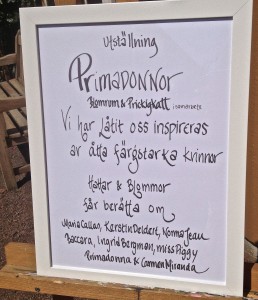 Utställning
Primadonnor
Blomrum & PricKigKatt i samarbete
Vi har Låtit oss inspireras
av åtta färgstarka kvinnor
Hattar & Blommor
får berätta om
Maria Callas, Kerstin Deldert, Norma Jean
Baccara, Ingrid Bergman, miss Piggy
Primadonna & Carmen Miranda